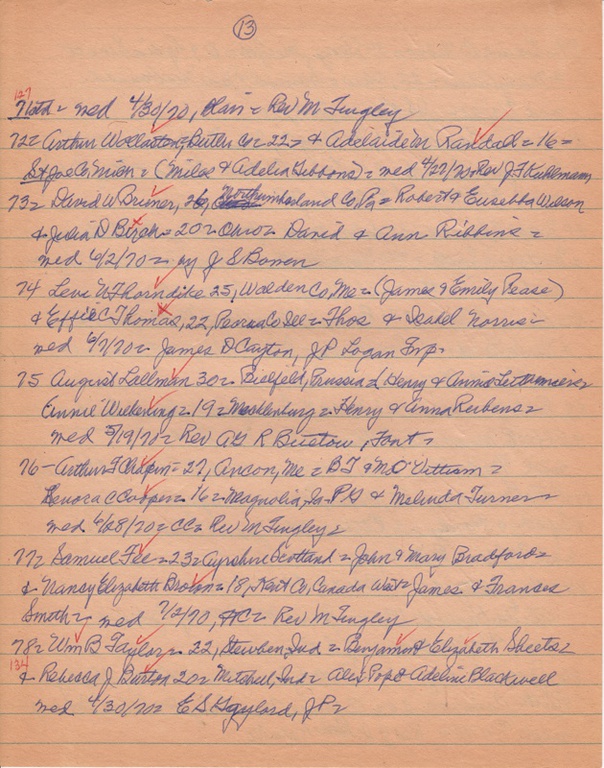 13
127
71 = wed 4/30/70, Blair = Rev M Tingley
72 = Arthur Wollaston = Butler Co = 22 = & Adelaide M Randall = 16 =
St Joe Co, Mich = (Miles & Adelia Gibbons) = wed 4/27/70 = Rev J F Kuhlmann
73 = David W Briner, 26, Northumberland Co, Pa = Robert & Eusebba Wilson
& Julia D Birch = 20 = Ohio = David & Ann Ribbins =
wed 6/2/70 = by J S Bowen
74 Levi N Thorndike 25, Walden Co, Me = (James & Emily Pease)
& Effie C Thomas, 22, Peoria Co Ill = Thos & Isabel Norris =
wed 6/7/70 = James D Cayton, JP Logan Twp.
75 August Lallman 30 = Bielfeld, Prussia = Henry & Annie
Annie Wickening = 19 = Mecklenburg = Henry & Anna Rubens =
wed 5/19/70 = Rev A G R Buetow, Font =
76 - Arthur F Chapin = 27, Anson, Me = B F & M O =
Lenora C Cooper = 16 = Magnolia, Ia = P G & Melinda Turner =
wed 6/28/70 = CC = Rev M Tingley =
77 = Samuel Fee = 23 = Ayrshire Scotland = John & Mary Bradford =
& Nancy Elizabeth Brown = 18, Kent Co, Canada West = James & Frances
Smith = wed 7/2/70, = Rev M Tingley
78 = Wm B Taylor = 22, Steuben, Ind = Benjamin & Elizabeth Sheets =
134
& Rebecca J Burton 20 = Mitchell, Ind = Alex Pope & Adeline Blackwell
wed 4/30/70 = E S Gaylord, JP =